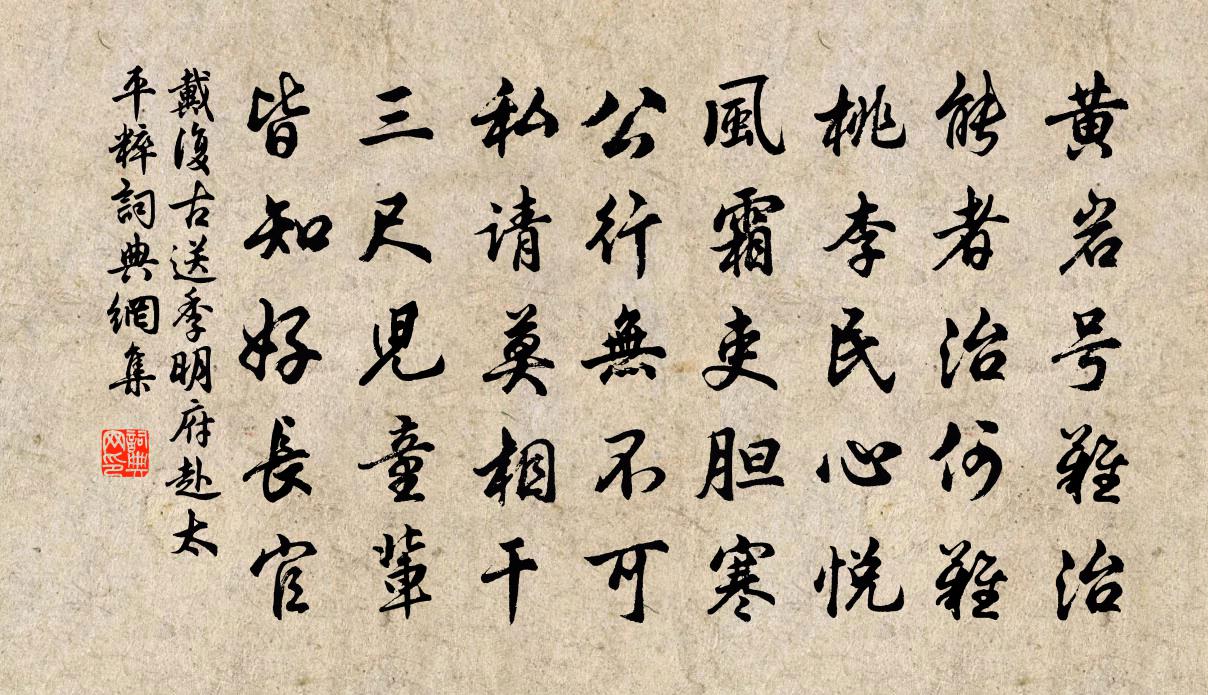 黄岩号難治
能者治何難
桃李民心悦
風霜吏胆寒
公行無不可
私请莫相干
三尺児童輩
皆知好長官
戴復古送季明府赴太
平粹詞典網集
詞典
网印